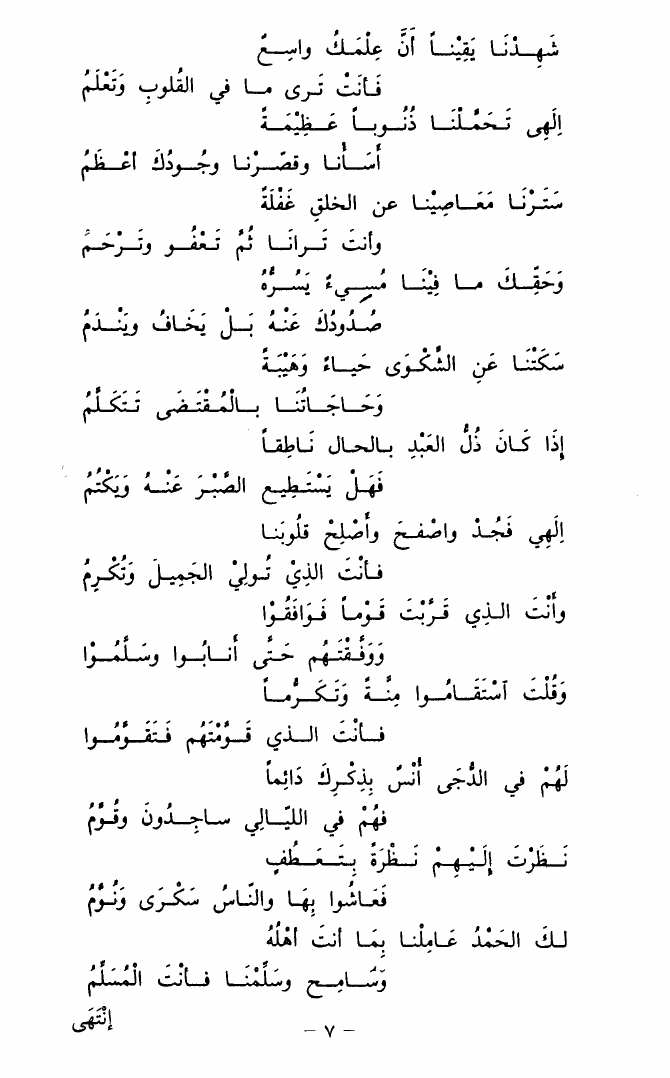 شَهِدْنَا يَقِيْناً أَنَّ عِلْمَكَ واسِعٌ
فَأنْتَ تَرى ما في القُلوبِ وَتَعْلَمُ
إلَهِى تَحَمَّلْنَا ذُنُوباً عَظِيْمَةً
أسَأْنا وقصّرْنا وجُودُكَ أعْظَمُ
سَتَرْنَا مَعَاصِيْنا عن الخلقِ غَفْلَةً
وأنتَ تَرانَا ثُمَّ تَعْفُو وتَرْحَمُ
وَحَقِّكَ ما فِيْنَا مُسِيءٌ يَسُرُّهُ
صُدُودُكَ عَنْهُ بَلْ يَخَافُ ويَنْدَمُ
سَكَتْنَا عَنِ الشَّكْوَى حَيَاءً وَهَيْبَةً
وَحَاجَاتُنَا بالْمُقْتَضَى تَتَكَلَّمُ
إذَا كَانَ ذُلُّ العَبْدِ بالحال نَاطِقاً
فَهَلْ يَسْتَطِيع الصَّبْرَ عَنْهُ وَيَكْتُمُ
إلَهِي فَجُدْ واصْفَحَ وأَصْلِحْ قلُوبَنا
فأنْتَ الذِيْ تُولِيْ الجَمِيلَ وَتُكْرِمُ
وأَنْتَ الذِي قَرَّبْتَ قَوْماً فَوَافَقُوا
وَوَفَّقْتَهُم حَتَّى أَنابُوا وسَلَّمُوْا
وَقُلْتَ آسْتَقَامُوا مِنَّةً وَتَكَرُّماً
فأنْتَ الذي قَوَّمْتَهُم فَتَقَوَّمُوا
لَهُمْ في الدُّجَى أُنْسٌ بِذِكْرِكَ دَائِماً
فهُمْ في الليّالِي ساجِدُونَ وقُوَّمُ
نَظَرْتَ إلَيْهِمْ نَظْرَةً بِتَعَطُفٍ
فَعَاشُوا بِهَا والنّاسُ سَكْرَى وَنُوَّمُ
لكَ الحَمْدُ عَامِلْنا بِمَا أنتَ أهْلُهُ
وَسَامِح وسَلِّمْنَا فأنْتَ الْمُسَلِّمُ
إنْتَهَى
– ٧ –